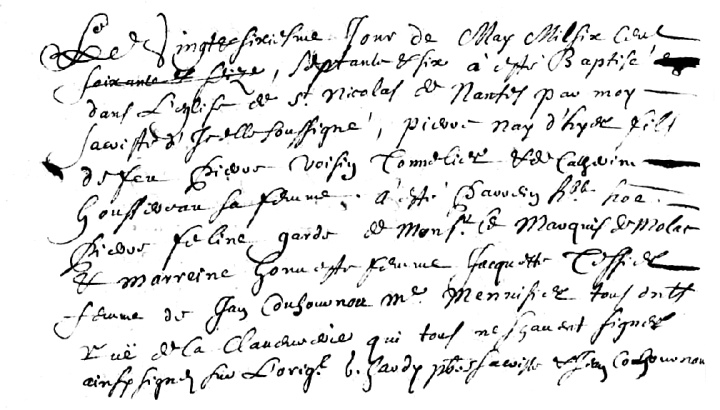 Le Vingtesixiesme Jour de May Mil six Cent
soixante et seize, septante et six a esté Baptisé
dans L'eglise de St Nicolas de Nantes par moy
sacriste d'Icelle soussigné, pierre nay d'hyer fils
de feu Pierre Voisin Tonnelier et de Catherine
sa femme. a esté Parrein hble hoe
Pierre feline garde de Monsr Le Marquis de Molac
et marreine honneste femme Jacquette Teffier
femme de Jan Couhournou Me Mennisier tous dts
ruë de La Clavurerie qui tous ne sçavent signer
ainsy signé sur L'origl b. hardy pbre sacriste et Jan Couhournou